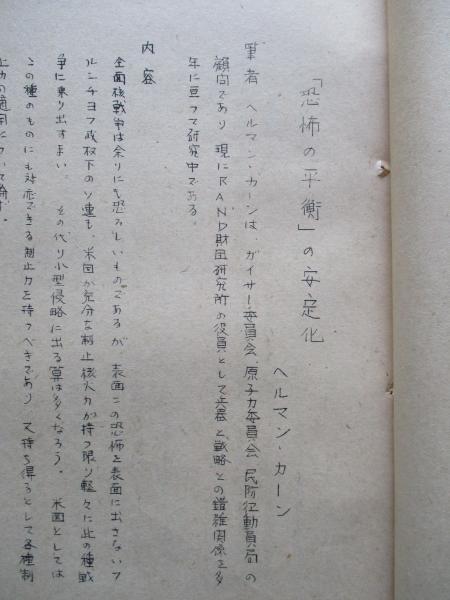 「恐怖の平衡」の安定化
ヘルマン・カーン
筆者 ヘルマン・カーンは、ガイサー委員会、原子力委員会、民防動員局の
顧問であり 現にRAND財団研究所の役員として兵器と戦略との錯雑関係を多
年に亘つて研究中である。
内容
全面核戦争は余りにも恐ろしいものであるが 表面この恐怖を表面に出さないフ
ルシチヨフ政权下のソ連も、米国が充分な制止核火力が持つ限り軽々に此の種戦
争に乗り出すまい その代り小型侵略に出る算は多くなろう。 米国としては
この種のものにも対応できる制止力を持つべきであり 又持ち得るとして各種制
止力の適用について論ず。